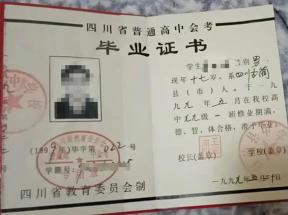 四川省普通高中会考
毕业证书
学生 性别男
现年十七岁,系四川
县(市)人。一九
九九年五月在我校高
中 一班修业期满,
德、智、体合格,准予毕业。
校长(盖章) 学校(盖章)
(1999年)毕字第 002号
学籍号:
四川省教育委员会制
一九九九年五月 日